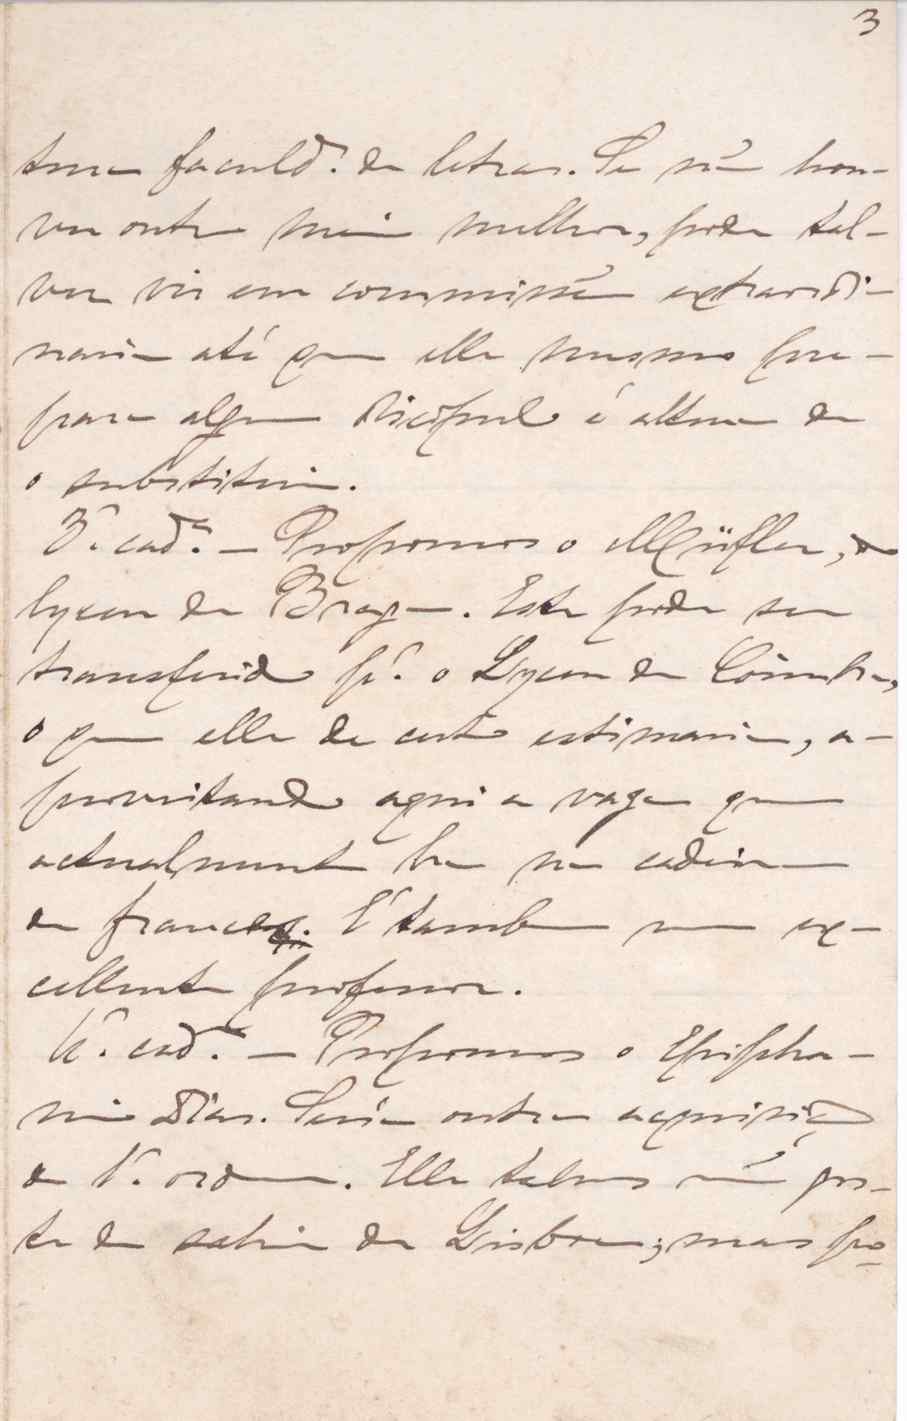 3
tura faculd.e de letras. Se não hou-
ver outro meio melhor, pode tal-
vez vir em commissão extraordi-
naria até que elle mesmo pre-
pare algum discipulo á altura de
o substituir.
3.a cad.a — Propomos o Müfler, do
lyceu de Braga. Este pode ser
transferido p.a o Lyceu de Coimbra,
o que elle de certo estimaria, a-
proveitando aqui a vaga que
actualmente ha na cadeira
de francez. É tambem um ex-
cellente professor.
4.a cad.a — Propomos o Epipha-
nio Dias. Seria outra acquisição
de 1.a ordem. Elle talvez não gos-
te de sahir de Lisboa; mas po-